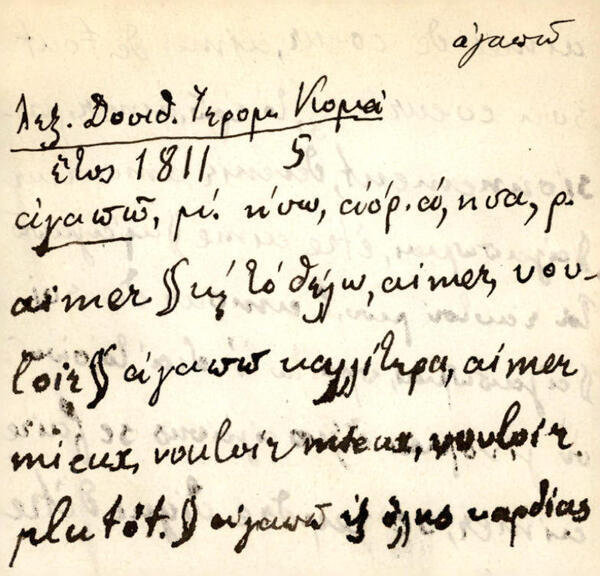 ἀγαπῶ
Λεξ. Δαυιδ. Ἱερομ. Κιομιά
ἔτος 1811 5
ἀγαπῶ, μέ. ήσω, ἀόρ. ά, ησα, ρ.
aimer § κ̀ τὸ θέλω, aimer, vou-
loir § ἀγαπῶ καλλίτερα, aimer
mieux, vouloir mieux, vouloir
plutôt. § ἀγαπῶ ἐξ ὅλης καρδίας